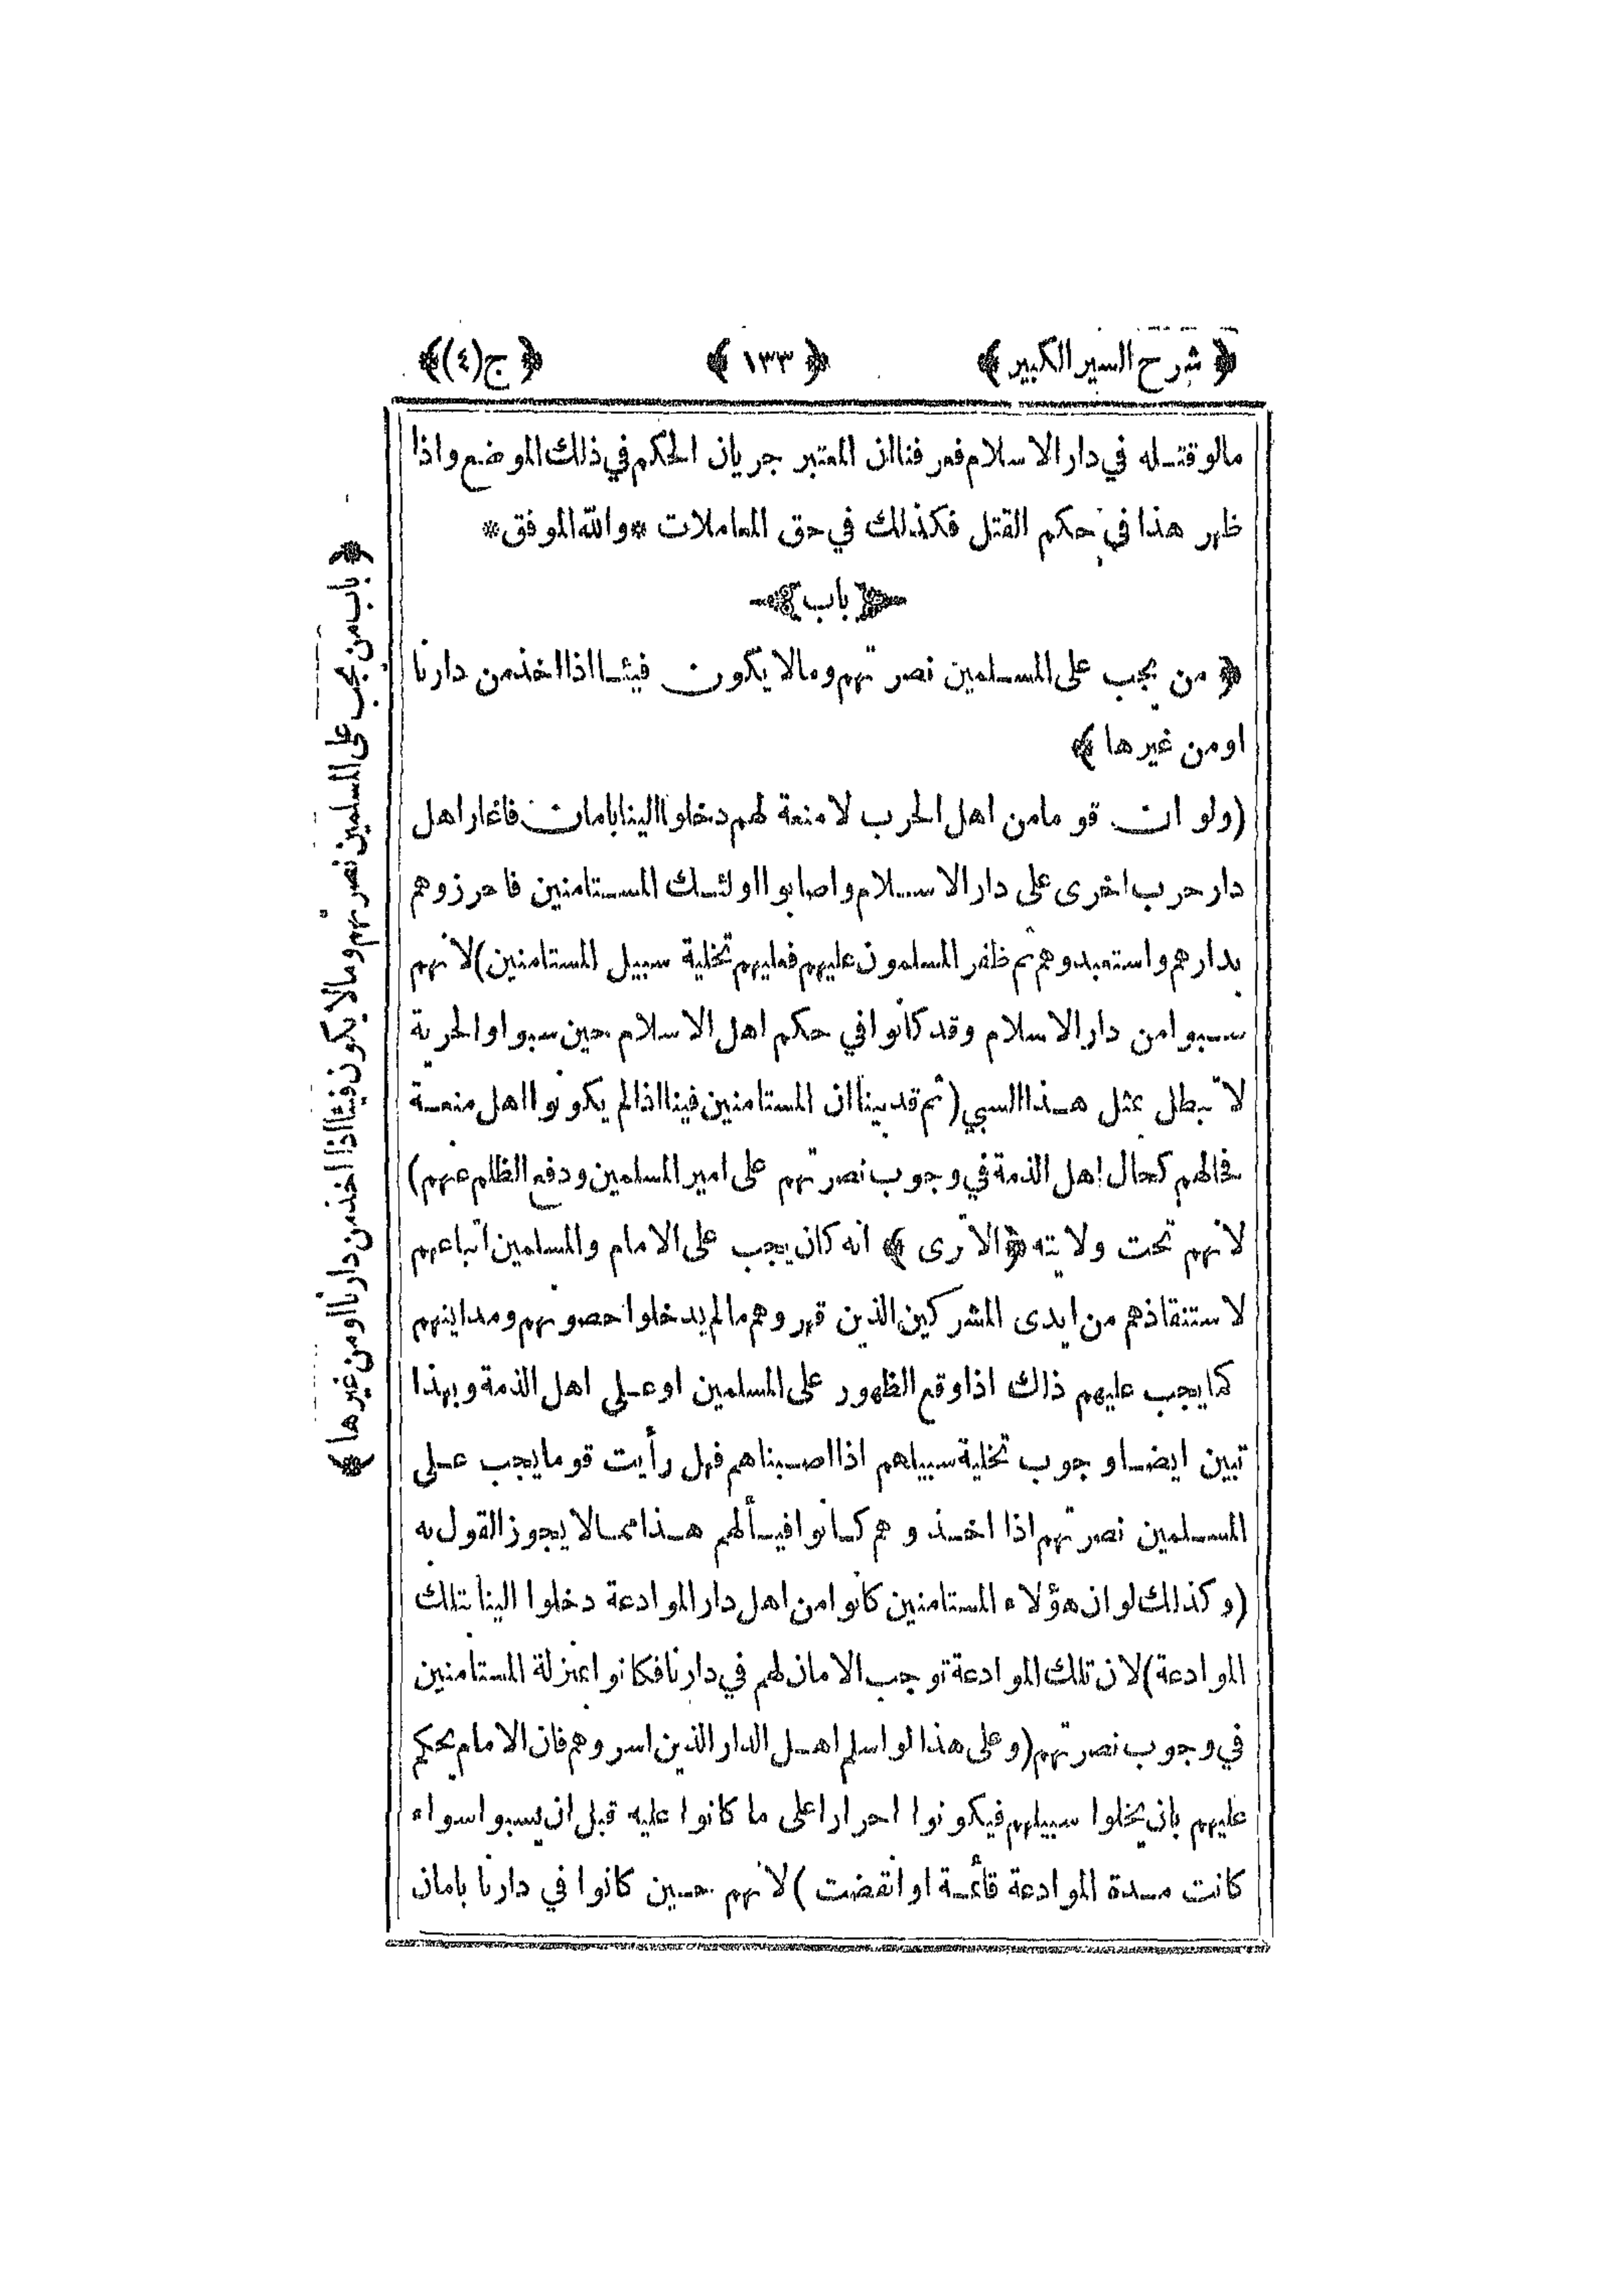 ﴿ شرح السير الكبير ﴾ ﴿ ١٣٣ ﴾ ﴿ ج (٤) ﴾
مالو قتله في دار الاسلام فعرفنا ان المعتبر جريان الحكم في ذلك الموضع واذا
ظهر هذا في حكم القتل فكذلك في حق المعاملات * والله الموفق *
﴿ باب ﴾
﴿ من يجب على المسلمين نصرتهم وما لا يكون فيئا اذا اخذ من دارنا
او من غيرها ﴾
(ولو ان قوما من اهل الحرب لا منعة لهم دخلوا الينا بامان فاغار اهل
دار حرب اخرى على دار الاسلام واصابوا اولئك المستامنين فاحرزوهم
بدارهم واستعبدوهم ثم ظفر المسلمون عليهم فعليهم تخلية سبيل المستامنين) لانهم
سبوا من دار الاسلام وقد كانوا في حكم اهل الاسلام حين سبوا والحرية
لا تبطل بمثل هذا السبي (ثم قد بينا ان المستامنين فينا اذا لم يكونوا اهل منعة
فحالهم كحال اهل الذمة في وجوب نصرتهم على امير المسلمين ودفع الظلم عنهم)
لانهم تحت ولايته ﴿ الا ترى ﴾ انه كان يجب على الامام والمسلمين اتباعهم
لاستنقاذهم من ايدى المشركين الذين قهروهم مالم يدخلوا حصونهم ومداينهم
كما يجب عليهم ذلك اذا وقع الظهور على المسلمين او على اهل الذمة وبهذا
تبين ايضا وجوب تخلية سبيلهم اذا اصبناهم فهل رأيت قوما يجب على
المسلمين نصرتهم اذا اخذوهم كانوا فيألهم هذا مما لا يجوز القول به
(وكذلك لو ان هؤلاء المستامنين كانوا من اهل دار الموادعة دخلوا الينا بتلك
الموادعة) لان تلك الموادعة توجب الامان لهم في دارنا فكانوا بمنزلة المستامنين
في وجوب نصرتهم (وعلى هذا لو اسلم اهل الدار الذين اسروهم فان الامام يحكم
عليهم بان يخلوا سبيلهم فيكونوا احرارا على ما كانوا عليه قبل ان يسبوا سواء
كانت مدة الموادعة قائمة او انقضت) لانهم حين كانوا في دارنا بامان
﴿ باب من يجب على المسلمين نصرتهم وما لا يكون فيئا اذا اخذ من دارنا او من غيرها ﴾